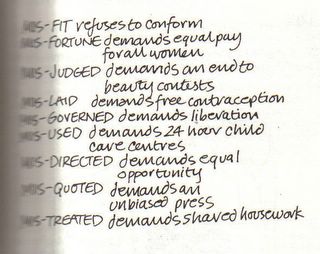 MIS-FIT refuses to conform
MIS-FORTUNE demands equal pay
for all women
MIS-JUDGED demands an end to
beauty contests
MIS-LAID demands free contraception
MIS-GOVERNED demands liberation
MIS-USED demands 24 hour child
care centres
MIS-DIRECTED demands equal
opportunity
MIS-QUOTED demands an
unbiased press
MIS-TREATED demands shared housework